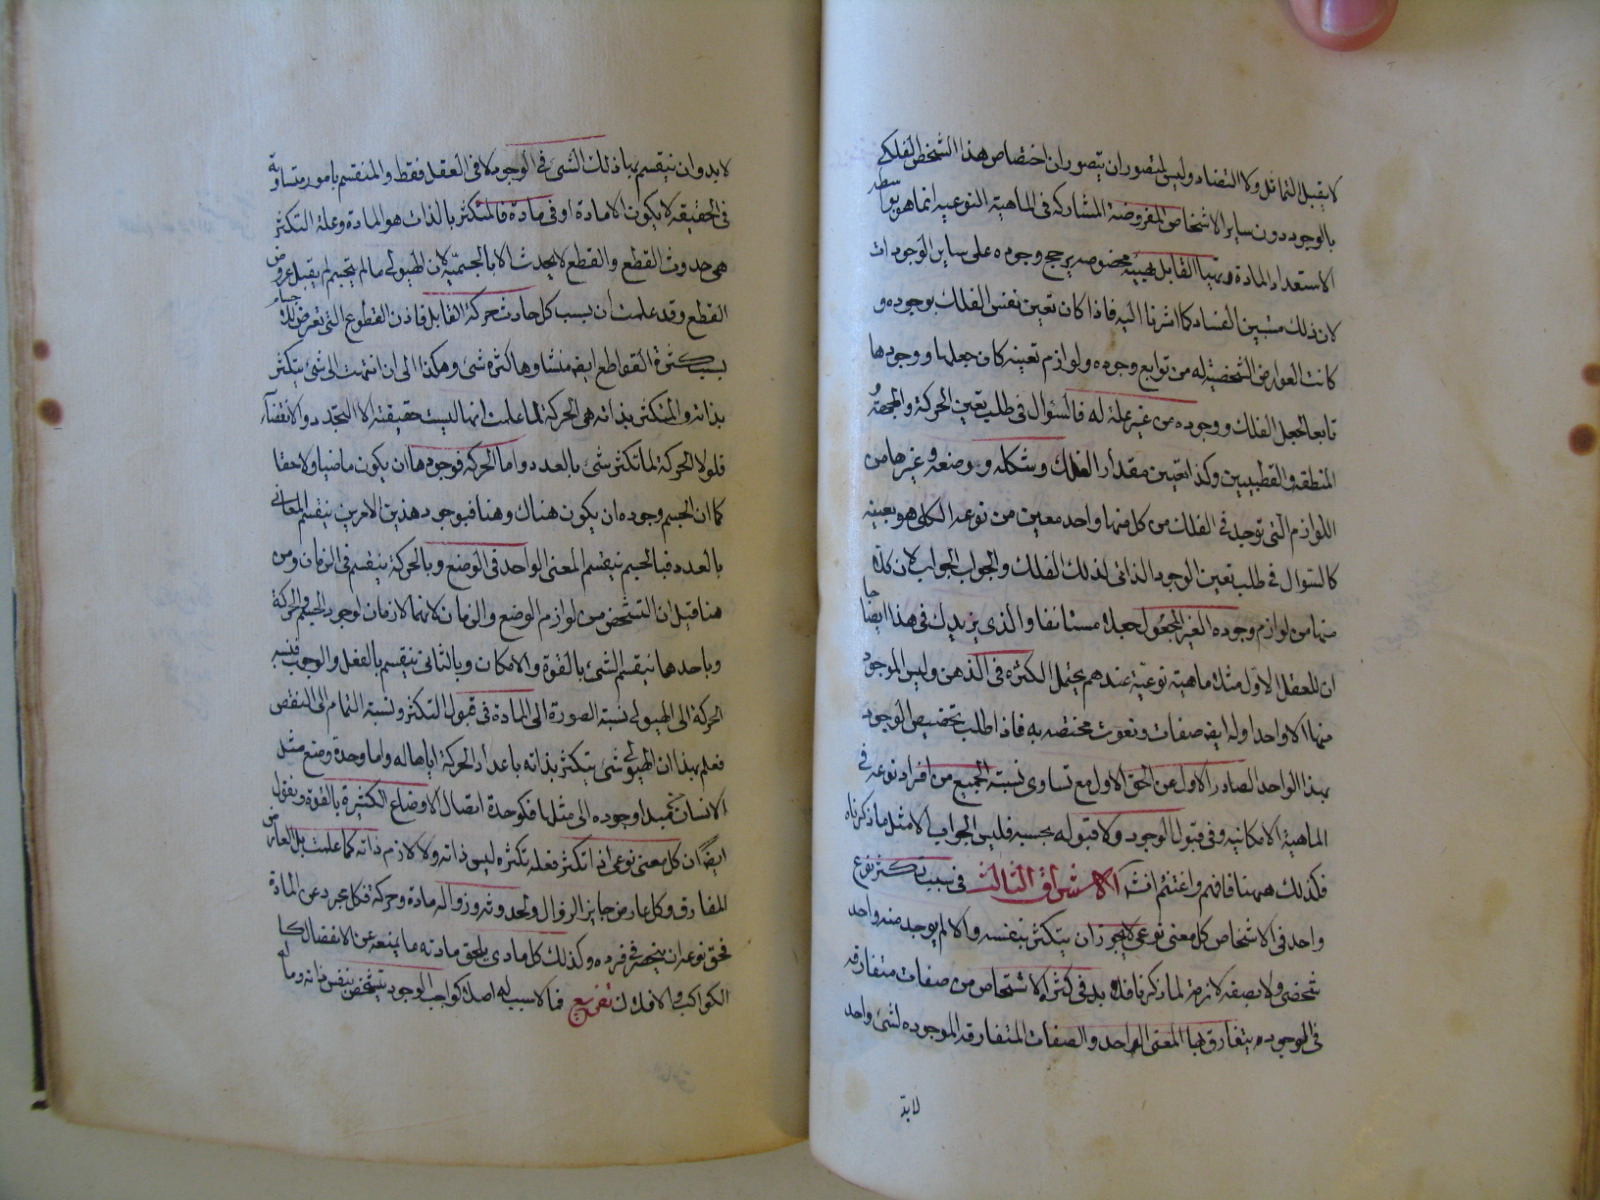 لا يقبل التماثل ولا التضاد وليس لمتصور ان يتصور ان اختصاص هذا الشخص الفلكي
بالوجود دون ساير الاشخاص المفروضة المشاركه فى الماهية النوعيه انما هو بواسطه
الاستعداد المادة وتهيا القابل بهيئة مخصوصه يرجح وجوده على ساير الوجودات
لان ذلك متبين الفساد كما اشرنا اليه فاذا كان تعين نفس الفلك بوجوده و
كانت العوارض الشخصية له من توابع وجوده ولوازم تعينه كان جعلها ووجودها
تابعا لجعل الفلك ووجوده من غير علة له فالسؤال فى طلب تعين الحركة والجهة و
المنطقه والقطبين وكذا تعيين مقدار الفلك وشكله ووضعه وغيرها من
اللوازم التى توجد فى الفلك من كل منها واحد معين من نوعه الكلى هو بعينه
كالسؤال فى طلب تعين الوجود الذاتى لذلك الفلك والجواب الجواب لان كلا
منها من لوازم وجوده الغير المجعول جعلا مستانفا والذى يزيدك فى هذا ايضاحا
ان للعقل الاول مثلا ماهية نوعية عندهم يحتمل الكثرة فى الذهن وليس الموجود
منها الا واحدا وله ايضا صفات ونعوت مختصه به فاذا طلب تخصيص الوجود
بهذا الواحد الصادر الاول عن الحق الاول مع تساوى نسبة الجميع من افراد نوعه فى
الماهية الامكانيه وفى قبول الوجود ولا قبوله بحسبه فليس الجواب الا مثل ما ذكرناه
فكذلك ههنا فافهم واغتنم انت الاشراق الثالث فى سبب تكثر نوع
واحد فى الاشخاص كل معنى نوعى لا يجوز ان يتكثر بنفسه والا لم يوجد منه واحد
شخصى ولا بصفه لازمة لما ذكر فلا بد فى كثرة الاشخاص من صفات متفارقه
فى الوجود يتفارق بها المعنى الواحد والصفات المتفارقه الموجوده لشئ واحد
لابد
لابد وان ينقسم بها ذلك الشئ فى الوجود لا فى العقل فقط والمنقسم بامور متساوية
فى الحقيقه لا يكون الا مادة او فى مادة فالمتكثر بالذات هو المادة وعلة التكثر
هى حدوث القطع والقطع لا يحدث الا بالجسميه لان الهيولى ما لم يتجسم لم يقبل عروض
القطع وقد علمت ان سبب كل حادث حركة القابل فاذن القطوع التى تعرض للاجسام
بسبب كثرة القواطع ايضا منشاوها كثرة شئ وهكذا الى ان انتهت الى شئ يتكثر
بذاته والمتكثر بذاته هى الحركة لما علمت انها ليست حقيقته الا التجدد والانقضاء
فلولا الحركة لما تكثر شئ بالعدد واما الحركه فوجودها ان يكون ماضيا ولاحقا
كما ان الجسم وجوده ان يكون هناك وهنا فبوجود هذين الامرين ينقسم المعانى
بالعدد فبالجسم ينقسم المعنى الواحد فى الوضع وبالحركة ينقسم فى الزمان ومن
هنا قيل ان التشخص من لوازم الوضع والزمان لانهما لازمان لوجود الجسم والحركة
وباحدهما ينقسم الشئ بالقوة والامكان وبالثانى ينقسم بالفعل والوجوب فنسبه
الحركة الى الهيولى نسبة الصورة الى المادة فى قبول التكثر ونسبة التمام الى النقص
فعلم بهذا ان الهيولى شئ يتكثر بذاته باعداد الحركة اياها له واما وحدة وضع مثل
الانسان من مبدا وجوده الى مثلها فكوحدة اتصال الاوضاع الكثيرة بالقوة ونقول
ايضا ان كل معنى نوعى اذا تكثر فعلة تكثره ليس ذاته ولا لازم ذاته كما علمت بل العارض
المفارق وكل عارض جايز الزوال ولحدوثه وزواله مادة وحركة فكل مجرد عن المادة
فحق نوعه ان ينحصر فى فرده وكذلك كل مادى يلحق مادته ما يمنعه عن الانفصال كا
الكواكب والافلاك تفريع فما لا سبب له اصلا كواجب الوجود يتشخص بنفس ذاته وما له